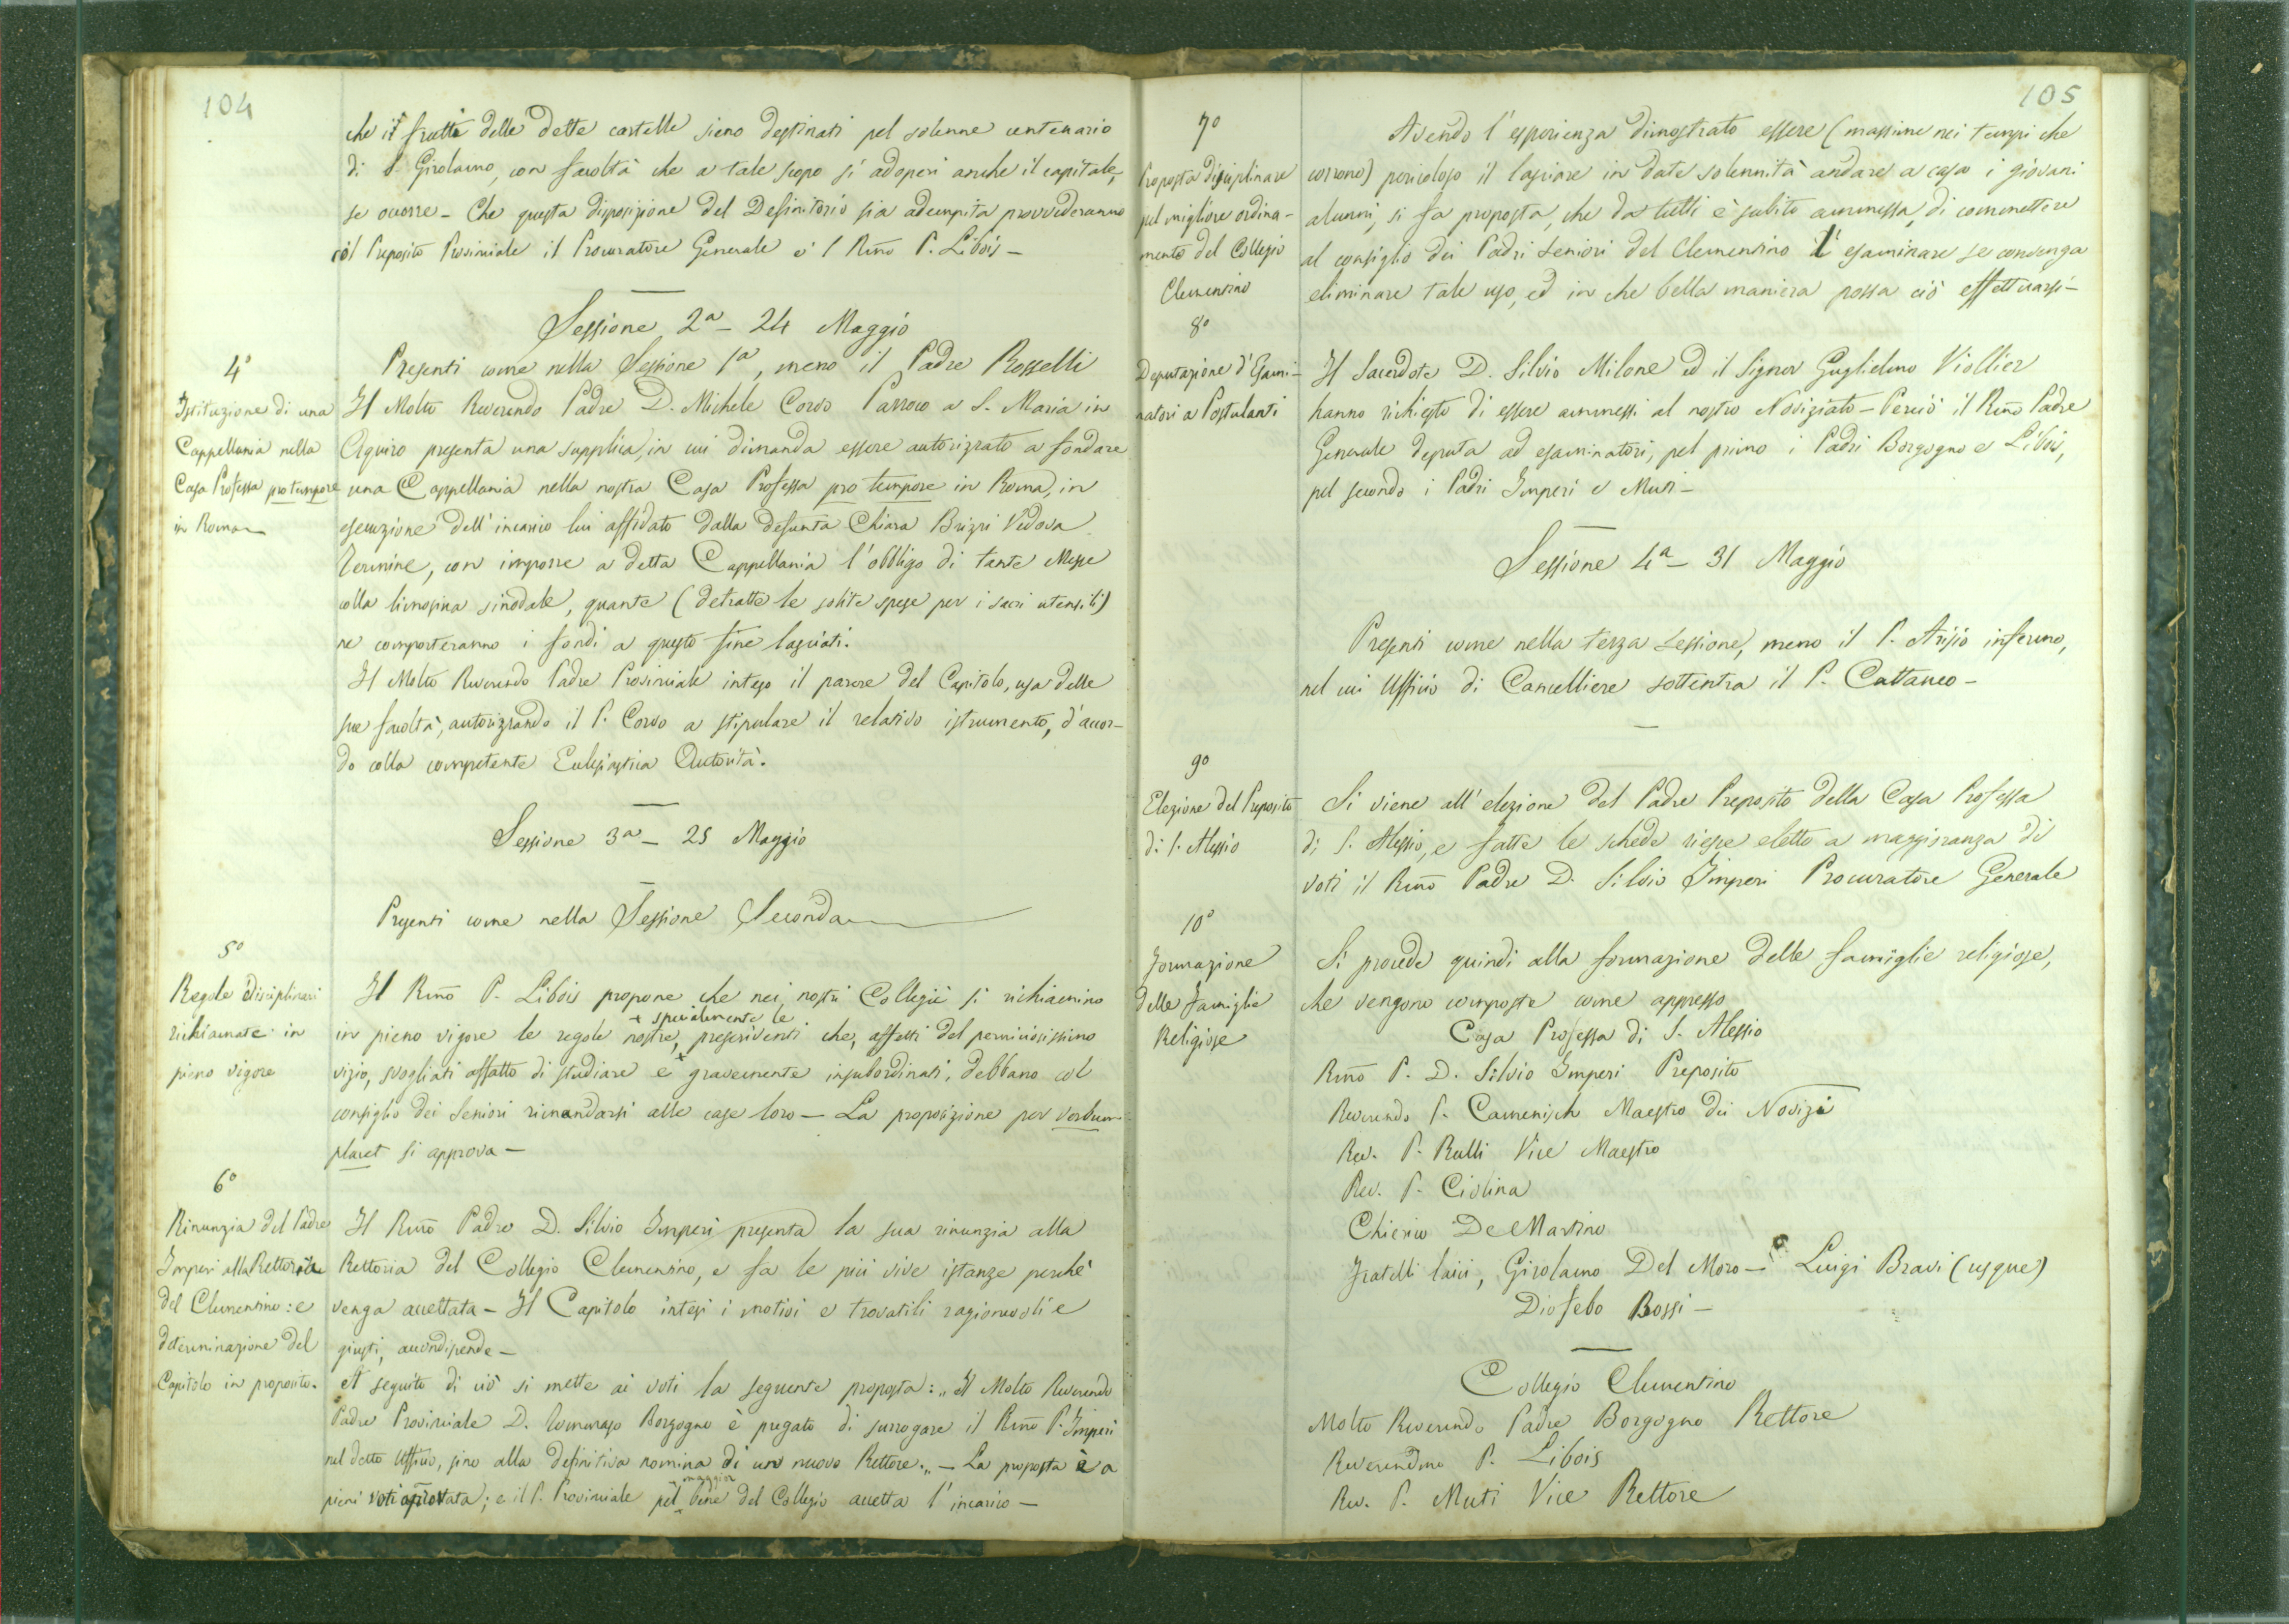 104
che i frutti delle dette cartelle sieno destinati pel solenne centenario
di S. Girolamo, con facoltà che a tale scopo si adoperi anche il capitale,
se occorre - Che questa disposizione del Definitorio sia adempita provvederanno
il Preposito Provinciale il Procuratore Generale e 'l Rmo P. Libois -
Sessione 2a - 24 Maggio
Presenti come nella Sessione 1a, meno il Padre Rosselli
4°
Istituzione di una
Cappellania nella
Casa Professa pro tempore
in Roma
Il Molto Reverendo Padre D. Michele Corvo Parroco a S. Maria in
Aquiro presenta una supplica, in cui dimanda essere autorizzato a fondare
una Cappellania nella nostra Casa Professa pro tempore in Roma, in
esecuzione dell'incarico lui affidato dalla defunta Chiara Brizzi Vedova
Termine, con imporre a detta Cappellania l'obbligo di tante Messe
colla limosina sinodale, quante (detratte le solite spese per i sacri utensili)
ne comporteranno i fondi a questo fine lasciati.
Il Molto Reverendo Padre Provinciale inteso il parere del Capitolo, usa delle
sue facoltà, autorizzando il P. Corvo a stipulare il relativo istrumento, d'accor-
do colla competente Ecclesiastica Autorità.
Sessione 3a - 25 Maggio
Presenti come nella Sessione Seconda
5°
Regole disciplinari
richiamate in
pieno vigore
Il Rmo P. Libois propone che nei nostri Collegii si richiamino
+ specialmente le
in pieno vigore le regole nostre, + prescriventi che, affetti del perniciosissimo
vizio, svogliati affatto di studiare e gravemente insubordinati, debbano col
consiglio dei Seniori rimandarsi alle case loro - La proposizione per verbum
placet si approva -
6°
Rinunzia del Padre
Imperi alla Rettoria
del Clementino: e
determinazione del
Capitolo in proposito.
Il Rmo Padre D. Silvio Imperi presenta la sua rinunzia alla
Rettoria del Collegio Clementino, e fa le più vive istanze perchè
venga accettata - Il Capitolo intesi i motivi e trovatili ragionevoli e
giusti, accondiscende -
A seguito di ciò si mette ai voti la seguente proposta: „ Il Molto Reverendo
Padre Provinciale D. Tommaso Borgogno è pregato di surrogare il Rmo P. Imperi
nel detto Uffico, sino alla definitiva nomina di un nuovo Rettore. „ - La proposta è a
maggior
pieni voti accettata; e il P. Provinciale pel bene del Collegio accetta l'incarico -
105
7°
Proposta disciplinare
pel migliore ordina-
mento del Collegio
Clementino
Avendo l'esperienza dimostrato essere (massime nei tempi che
corrono) pericoloso il lasciare in date solennità andare a casa i giovani
alunni, si fa proposta, che da tutti è subito ammessa, di commettere
al consiglio dei Padri Seniori del Clementino l'esaminare se convenga
eliminare tale uso, ed in che bella maniera possa ciò effettuarsi -
8°
Deputazione d'Esami-
natori a Postulanti
Il Sacerdote D. Silvio Milone ed il Signor Guglielmo Viollier
hanno richiesto di essere ammessi al nostro Noviziato - Perciò il Rmo Padre
Generale deputa ad esaminatori, pel primo i Padri Borgogno e Libois,
pel secondo i Padri Imperi e Muti -
Sessione 4a - 31 Maggio
Presenti come nella terza Sessione, meno il P. Arisio infermo,
nel cui Uffico di Cancelliere sottentra il P. Cattaneo -
9°
Elezione del Preposito
di S. Alessio
Si viene all'elezione del Padre Preposito della Casa Professa
di S. Alessio, e fatte le schede riesce eletto a maggioranza di
voti il Rmo Padre D. Silvio Imperi Procuratore Generale
10°
Formazione
delle famiglie
Religiose
Si procede quindi alla formazione delle famiglie religiose,
che vengono composte come appresso
Casa Professa di S. Alessio
Rmo P. D. Silvio Imperi Preposito
Reverendo P. Camenisch Maestro dei Novizi
Rev. P. Rulli Vice Maestro
Rev. P. Ciolina
Chierico De Martino
Fratelli laici, Girolamo Del Moro - Luigi Bravi (usque)
Diofebo Bossi -
Collegio Clementino
Molto Reverendo Padre Borgogno Rettore
Reverendmo P. Libois
Rev. P. Muti Vice Rettore